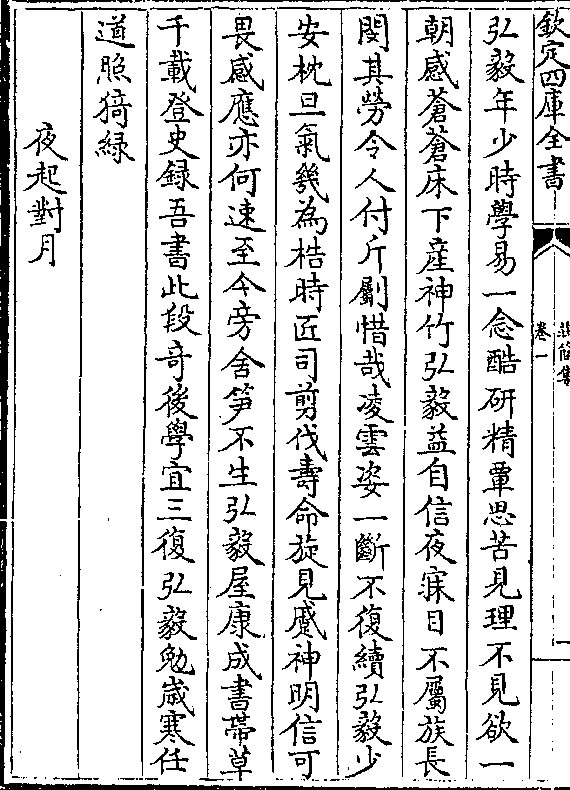 欽定四庫全書
卷一
弘毅年少時學易一念酷研精覃思苦見理不見欲一
朝感蒼蒼床下産神竹弘毅益自信夜寐目不屬族長
閔其勞令人付斤劚惜哉凌雲姿一斷不復續弘毅少
安枕旦氣幾為梏時匠司剪伐壽命旋見蹙神明信可
畏感應亦何速至今旁舍笋不生弘毅屋康成書帶草
千載登史録吾書此段竒後學宜三復弘毅勉嵗寒任
道照猗緑
夜起對月